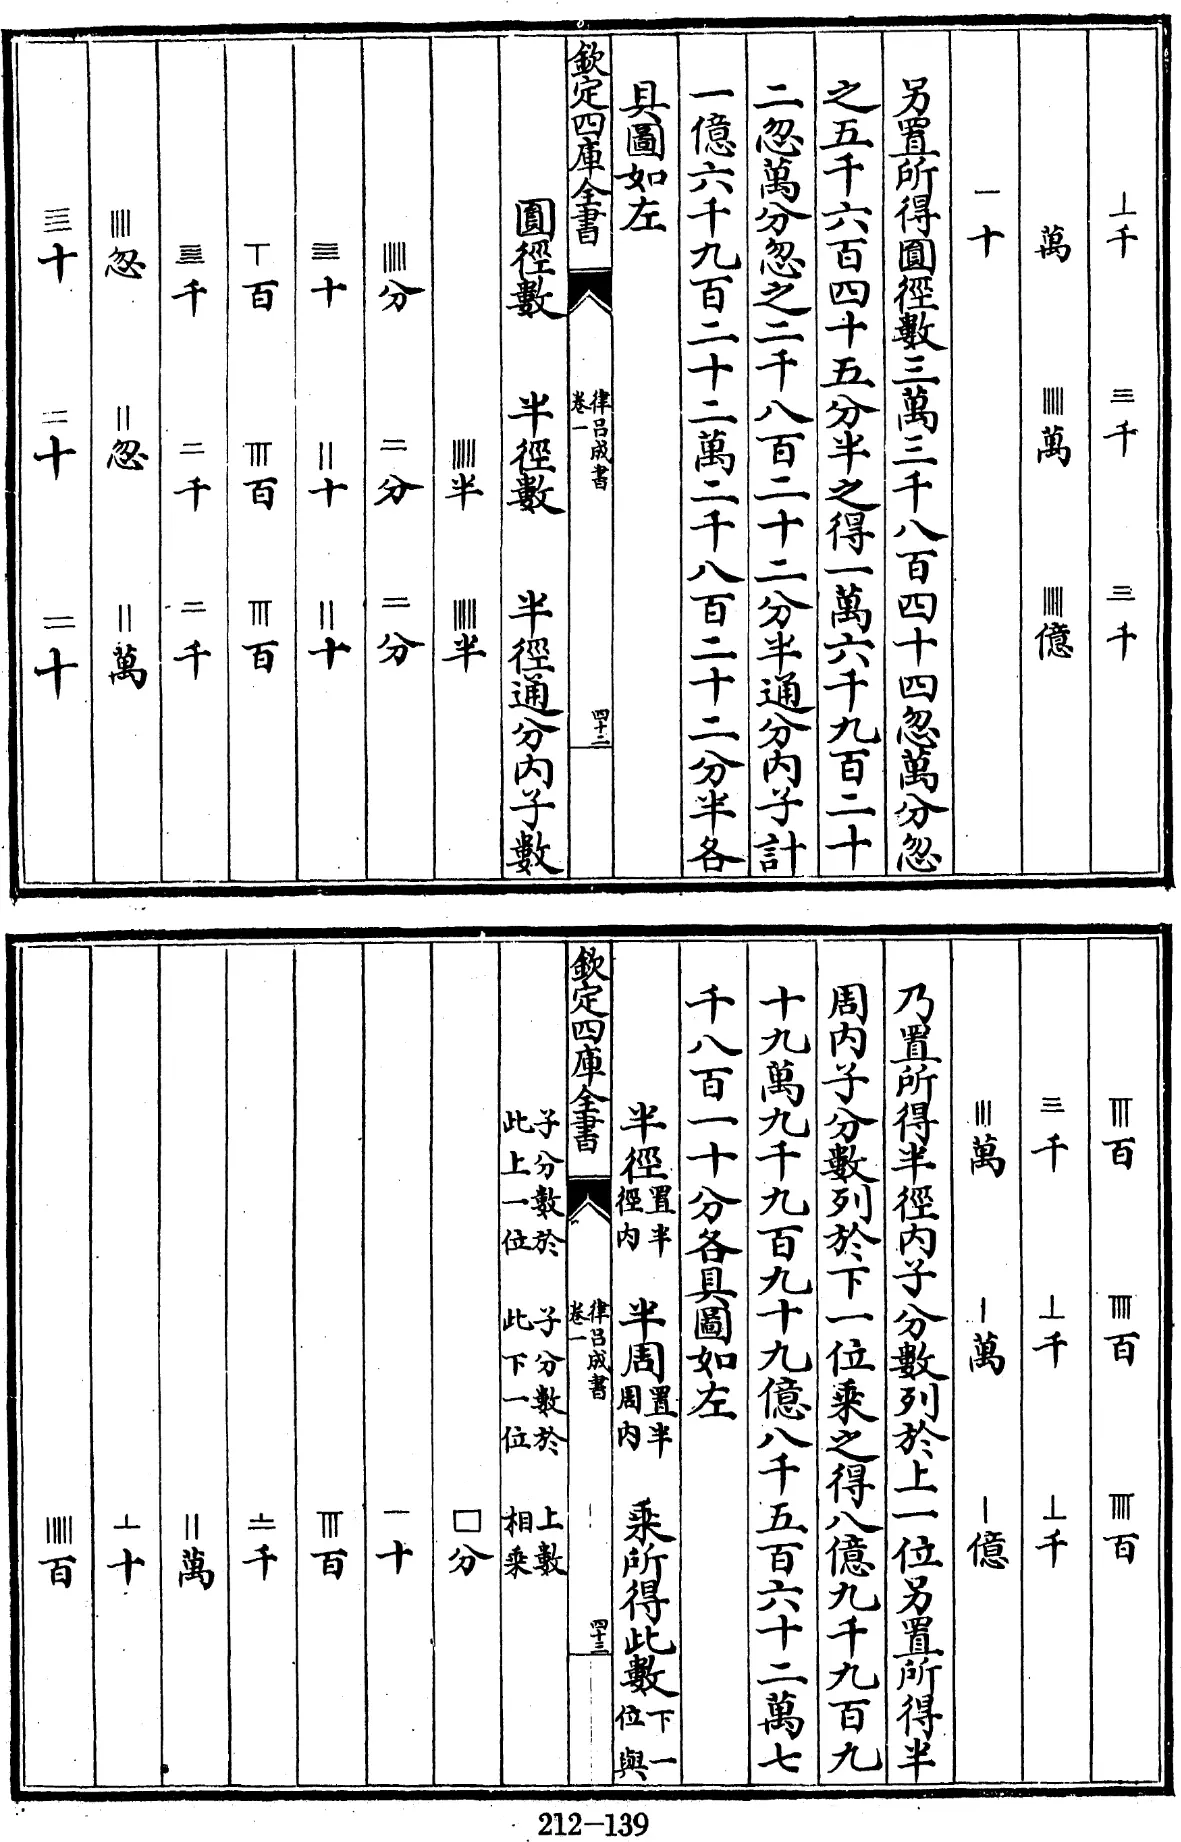 𝍥千　𝍢千　𝍢千
萬　𝍭萬　𝍭億
𝍠十
另置所得圓徑數三萬三千八百四十四忽萬分忽
之五千六百四十五分半之得一萬六千九百二十
二忽萬分忽之二千八百二十二分半通分内子計
一億六千九百二十二萬二千八百二十二分半各
具圖如左
欽定四庫全書　律呂成書卷一　四十二
圓徑數　半徑數　半徑通分内子數
𝍭半　𝍭半
𝍭分　𝍡分　𝍡分
𝍣十　𝍪十　𝍪十
𝍮百　𝍰百　𝍰百
𝍤千　𝍡千　𝍡千
𝍬忽　𝍪忽　𝍪萬
𝍣十　𝍡十　𝍡十
𝍰百　𝍱百　𝍱百
𝍢千　𝍥千　𝍥千
𝍫萬　𝍩萬　𝍩億
乃置所得半徑内子分數列於上一位另置所得半
周内子分數列於下一位乘之得八億九千九百九
十九萬九千九百九十九億八千五百六十二萬七
千八百一十分各具圖如左
半徑置半徑内　半周置半周内　乘所得此數下一位與
欽定四庫全書　律呂成書卷一　四十三
子分數於此上一位　子分數於此下一位　上數相乘
口分
𝍠十
𝍰百
𝍦千
𝍪萬
𝍥十
𝍭百
212-139